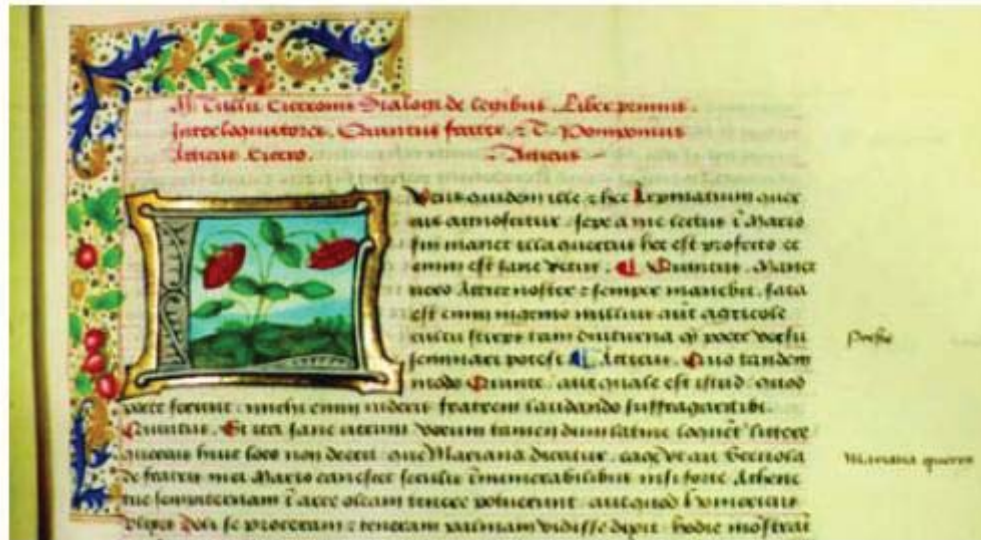 M Tullii Ciceronis Dialogi de legibus Liber primus.
Interloquutores. Quintus frater & T. Pomponius
Atticus Cicero. Atticus
Vcus quidem ille & hec Arpinatium quer
cus agnoscitur sepe a me lectus ī Mario
sin manet illa quercus hec est profecto et
enim est sane vetus. Quintus. Manet
vero Attice noster & semper manebit. sata
est enim ingenio nullius aut agricole
cultu stirps tam diuturna q̄ poete versu
seminari potest Atticus. Quo tandem
modo Quinte aut quale est istud quod
poete serunt michi enim videris fratrem laudando suffragari tibi.
Quintus. Sit ita sane verum tamen dum latine loquet̄ littere
quercus huic loco non deerit que Mariana dicatur. eaque ut ait Scevola
de fratris mei Mario canescet seculis īnumerabilibus nisi forte Athene
tue sempiternam ī arce oleam tenere potuerunt aut quod homericus
vlixes Deli se proceram & teneram palmam vidisse dixit hodie mōstrat
Mariana quercus